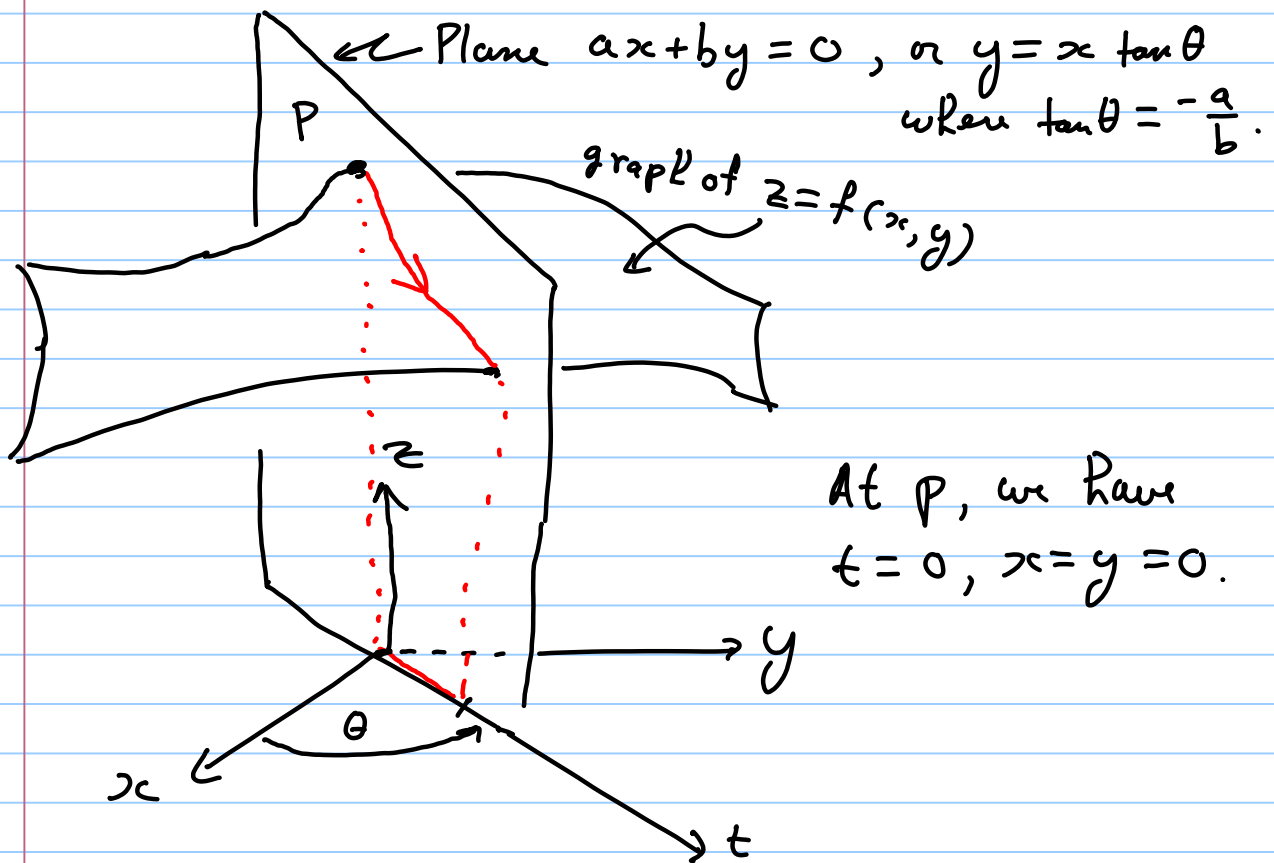 Plane ax+by=0, or y=x tanθ
where tanθ = -a/b.
P
graph of z=f(x,y)
z
At P, we have
t=0, x=y=0.
y
θ
x
t